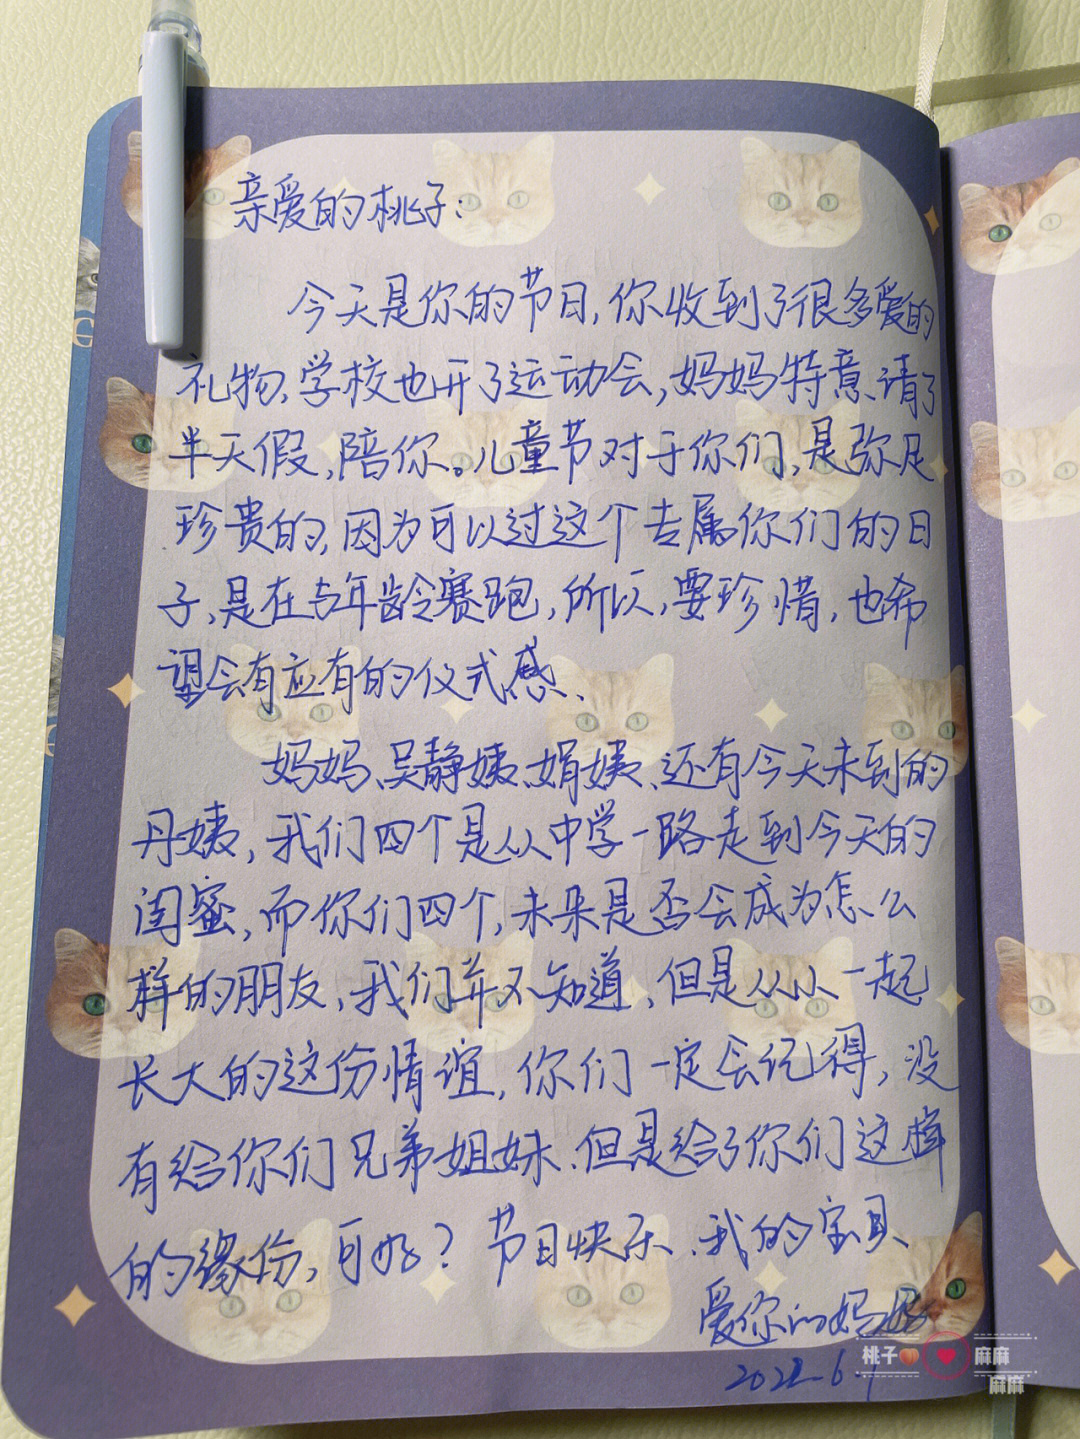 亲爱的桃子:
今天是你的节日,你收到了很多爱的
礼物,学校也开了运动会,妈妈特意请了
半天假,陪你。儿童节对于你们,是弥足
珍贵的,因为可以过这个专属你们的日
子,是在与年龄赛跑,所以,要珍惜,也希
望会有应有的仪式感、
妈妈、吴静姨、娟姨、还有今天未到的
丹姨,我们四个是从中学一路走到今天的
闺蜜,而你们四个,未来是否会成为怎么
样的朋友,我们并不知道,但是从小一起
长大的这份情谊,你们一定会记得,没
有给你们兄弟姐妹、但是给了你们这样
的缘份,可好?节日快乐、我的宝贝、
爱你的妈妈
2022.6.1
桃子 麻麻
麻麻